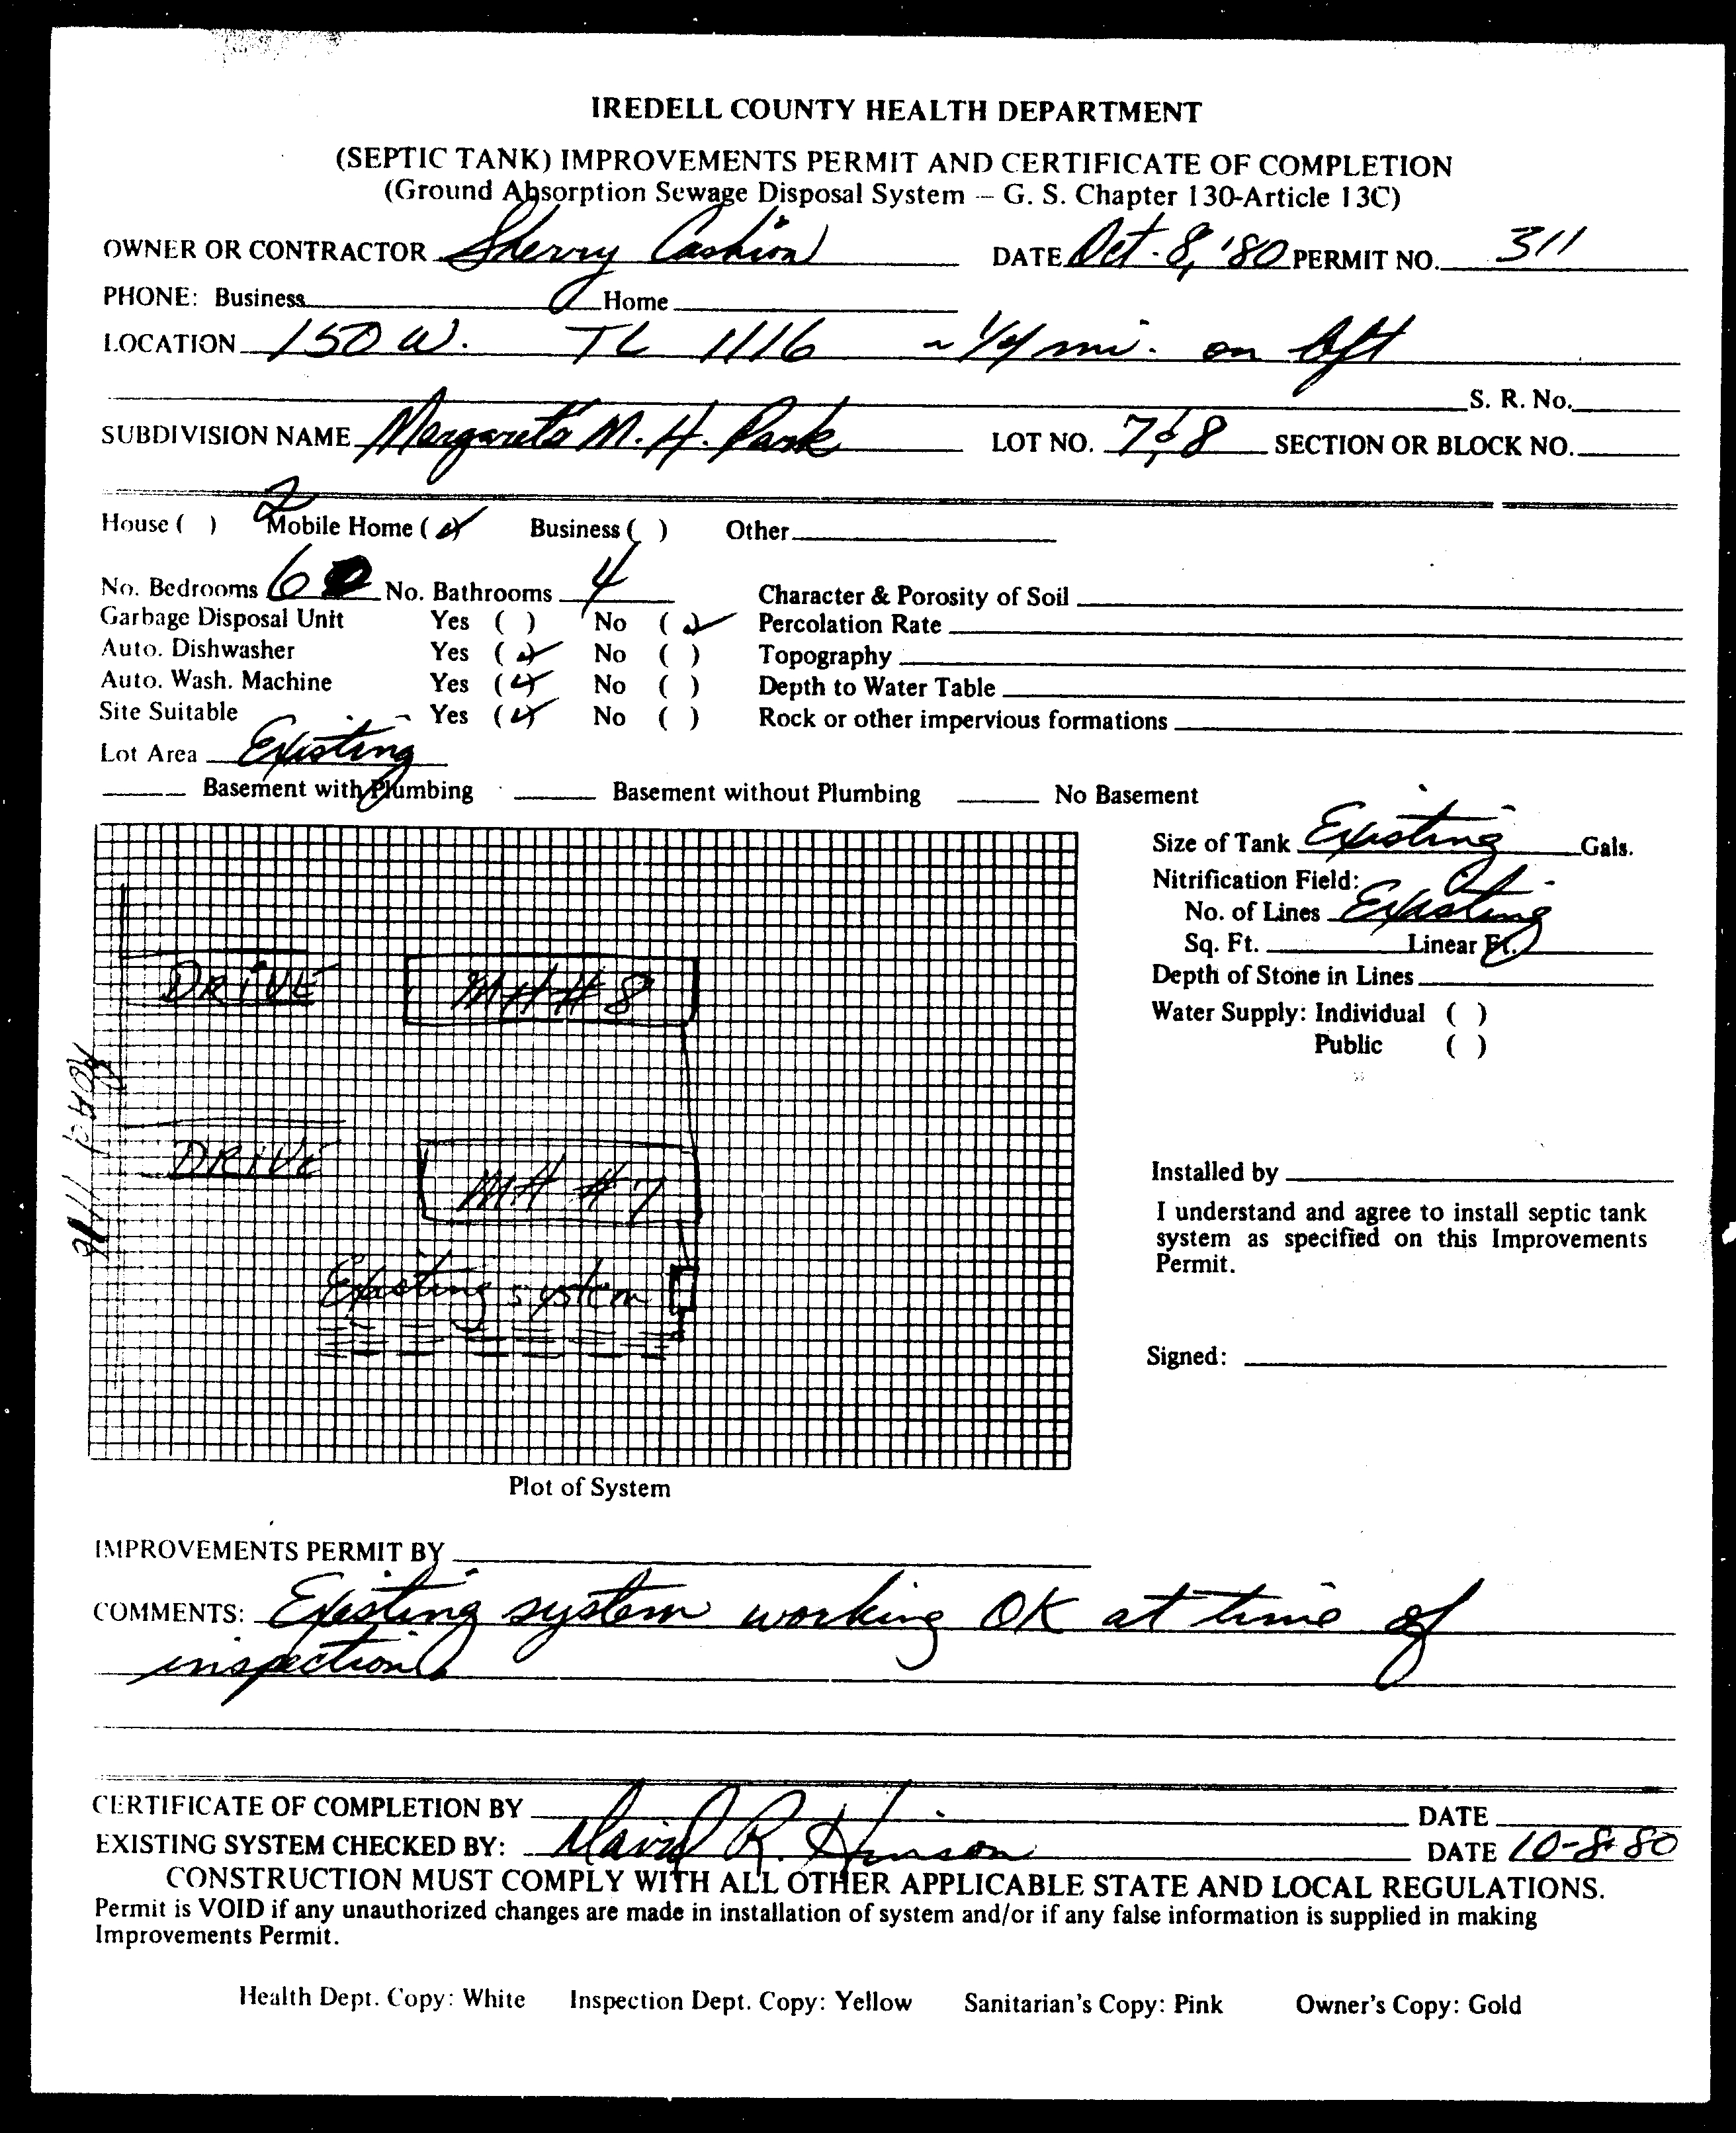 IREDELL COUNTY HEALTH DEPARTMENT
(SEPTIC TANK) IMPROVEMENTS PERMIT AND CERTIFICATE OF COMPLETION
(Ground Absorption Sewage Disposal System — G. S. Chapter 130-Article 13C)
OWNER OR CONTRACTOR Sherry Cashion DATE Oct. 8, '80 PERMIT NO. 311
PHONE: Business Home
LOCATION 150 W. TL 1116 ~ 1/4 mi. on left
S. R. No.
SUBDIVISION NAME Margareto M. H. Park LOT NO. 7 & 8 SECTION OR BLOCK NO.
House ( ) 2 Mobile Home (✓) Business ( ) Other
No. Bedrooms 6 No. Bathrooms 4 Character & Porosity of Soil
Garbage Disposal Unit Yes ( ) No (✓) Percolation Rate
Auto. Dishwasher Yes (✓) No ( ) Topography
Auto. Wash. Machine Yes (✓) No ( ) Depth to Water Table
Site Suitable Yes (✓) No ( ) Rock or other impervious formations
Lot Area Existing
Basement with Plumbing Basement without Plumbing No Basement
Size of Tank Existing Gals.
Nitrification Field:
No. of Lines Existing
Sq. Ft. Linear Ft.
Depth of Stone in Lines
Water Supply: Individual ( )
Public ( )
DRIVE MH # 8
ROAD 1116
DRIVE MH # 7
Existing system
Installed by
I understand and agree to install septic tank
system as specified on this Improvements
Permit.
Signed:
Plot of System
IMPROVEMENTS PERMIT BY
COMMENTS: Existing system working OK at time of
inspection
CERTIFICATE OF COMPLETION BY DATE
EXISTING SYSTEM CHECKED BY: David R. Hinson DATE 10-8-80
CONSTRUCTION MUST COMPLY WITH ALL OTHER APPLICABLE STATE AND LOCAL REGULATIONS.
Permit is VOID if any unauthorized changes are made in installation of system and/or if any false information is supplied in making
Improvements Permit.
Health Dept. Copy: White Inspection Dept. Copy: Yellow Sanitarian's Copy: Pink Owner's Copy: Gold